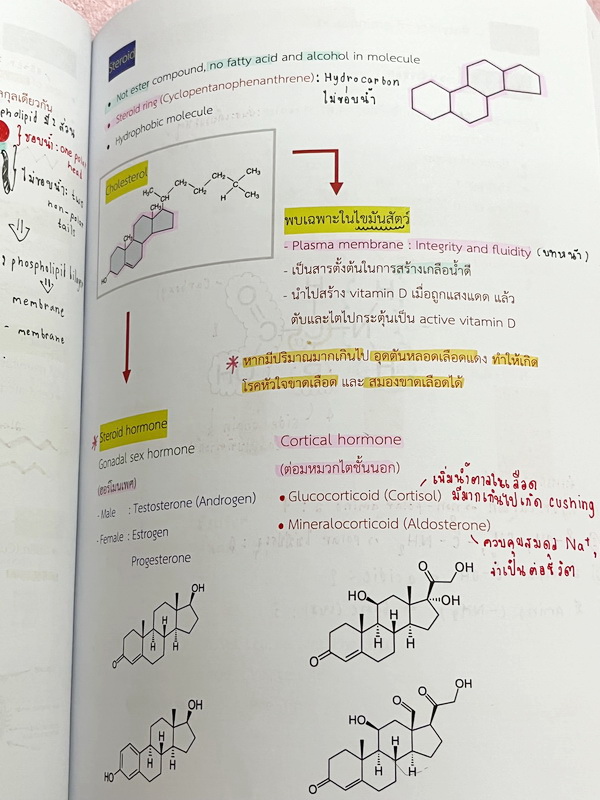 กุลเดียวกัน
pholipid มี 2 ส่วน
ชอบน้ำ : one polar
head
ไม่ชอบน้ำ : two
non-polar
tails
phospholipid bilayer
membrane
- membrane
Steroid
• Not ester compound, no fatty acid and alcohol in molecule
• Steroid ring (Cyclopentanophenanthrene) : Hydrocarbon
ไม่ชอบน้ำ
• Hydrophobic molecule
Cholesterol
H₃C
CH₂
CH₂
CH₂
CH₃
CH₃
H
CH₃
CH₃
HO
พบเฉพาะในไขมันสัตว์
- Plasma membrane : Integrity and fluidity (บทหน้า)
- เป็นสารตั้งต้นในการสร้างเกลือน้ำดี
- นำไปสร้าง vitamin D เมื่อถูกแสงแดด แล้ว
ตับและไตไปกระตุ้นเป็น active vitamin D
* หากมีปริมาณมากเกินไป อุดตันหลอดเลือดแดง ทำให้เกิด
โรคหัวใจขาดเลือด และ สมองขาดเลือดได้
* Steroid hormone
Gonadal sex hormone
(ฮอร์โมนเพศ)
- Male : Testosterone (Androgen)
- Female : Estrogen
Progesterone
Cortical hormone
(ต่อมหมวกไตชั้นนอก)
เพิ่มน้ำตาลในเลือด
• Glucocorticoid (Cortisol) มีมากเกินไปเกิด cushing
• Mineralocorticoid (Aldosterone)
ควบคุมสมดุล Na⁺,
จำเป็นต่อชีวิต
OH
H
H
H
O
O
OH
HO
OH
H
H
O
OH
H
H
H
HO
O
OH
O
HO
H
H
O